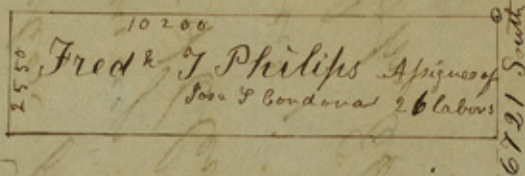 10200
2550
Fredk J Philips Assignee of
Jose S Condona 26 labors
6721 South